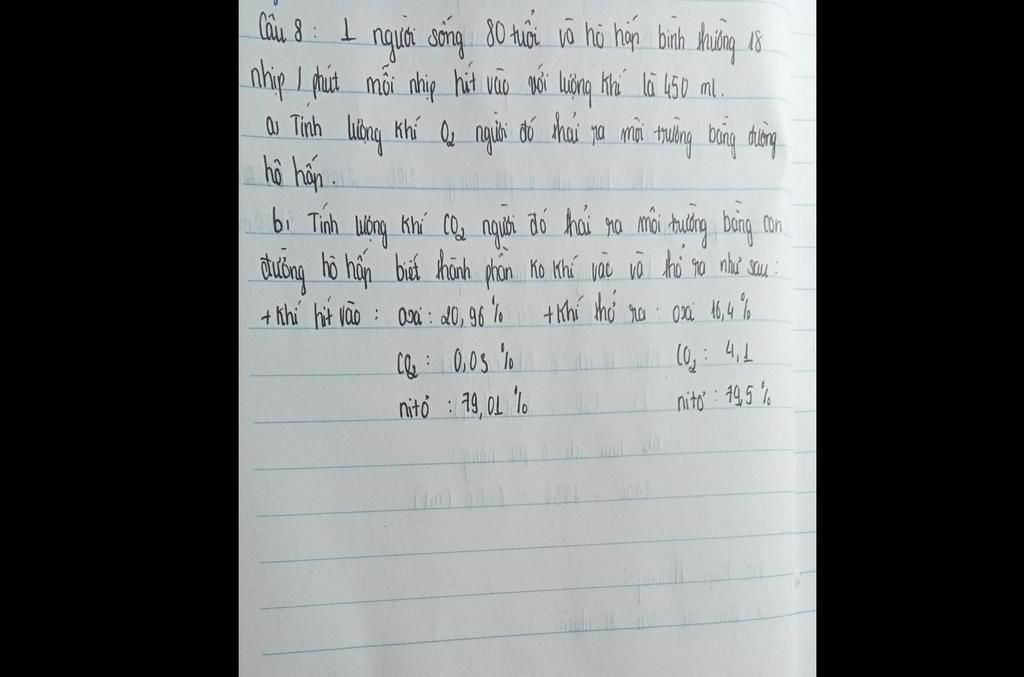 Câu 8 : 1 người sống 80 tuổi và hô hấp bình thường 18
nhịp / phút mỗi nhịp hít vào với lượng khí là 450 ml.
a) Tính lượng khí O2 người đó thải ra môi trường bằng đường
hô hấp.
b) Tính lượng khí CO2 người đó thải ra môi trường bằng con
đường hô hấp biết thành phần ko khí vào và thở ra như sau :
+ Khí hít vào : oxi : 20,96 % + Khí thở ra : oxi 16,4 %
CO2 : 0,03 % CO2 : 4,1
nitơ : 79,01 % nitơ : 79,5 %